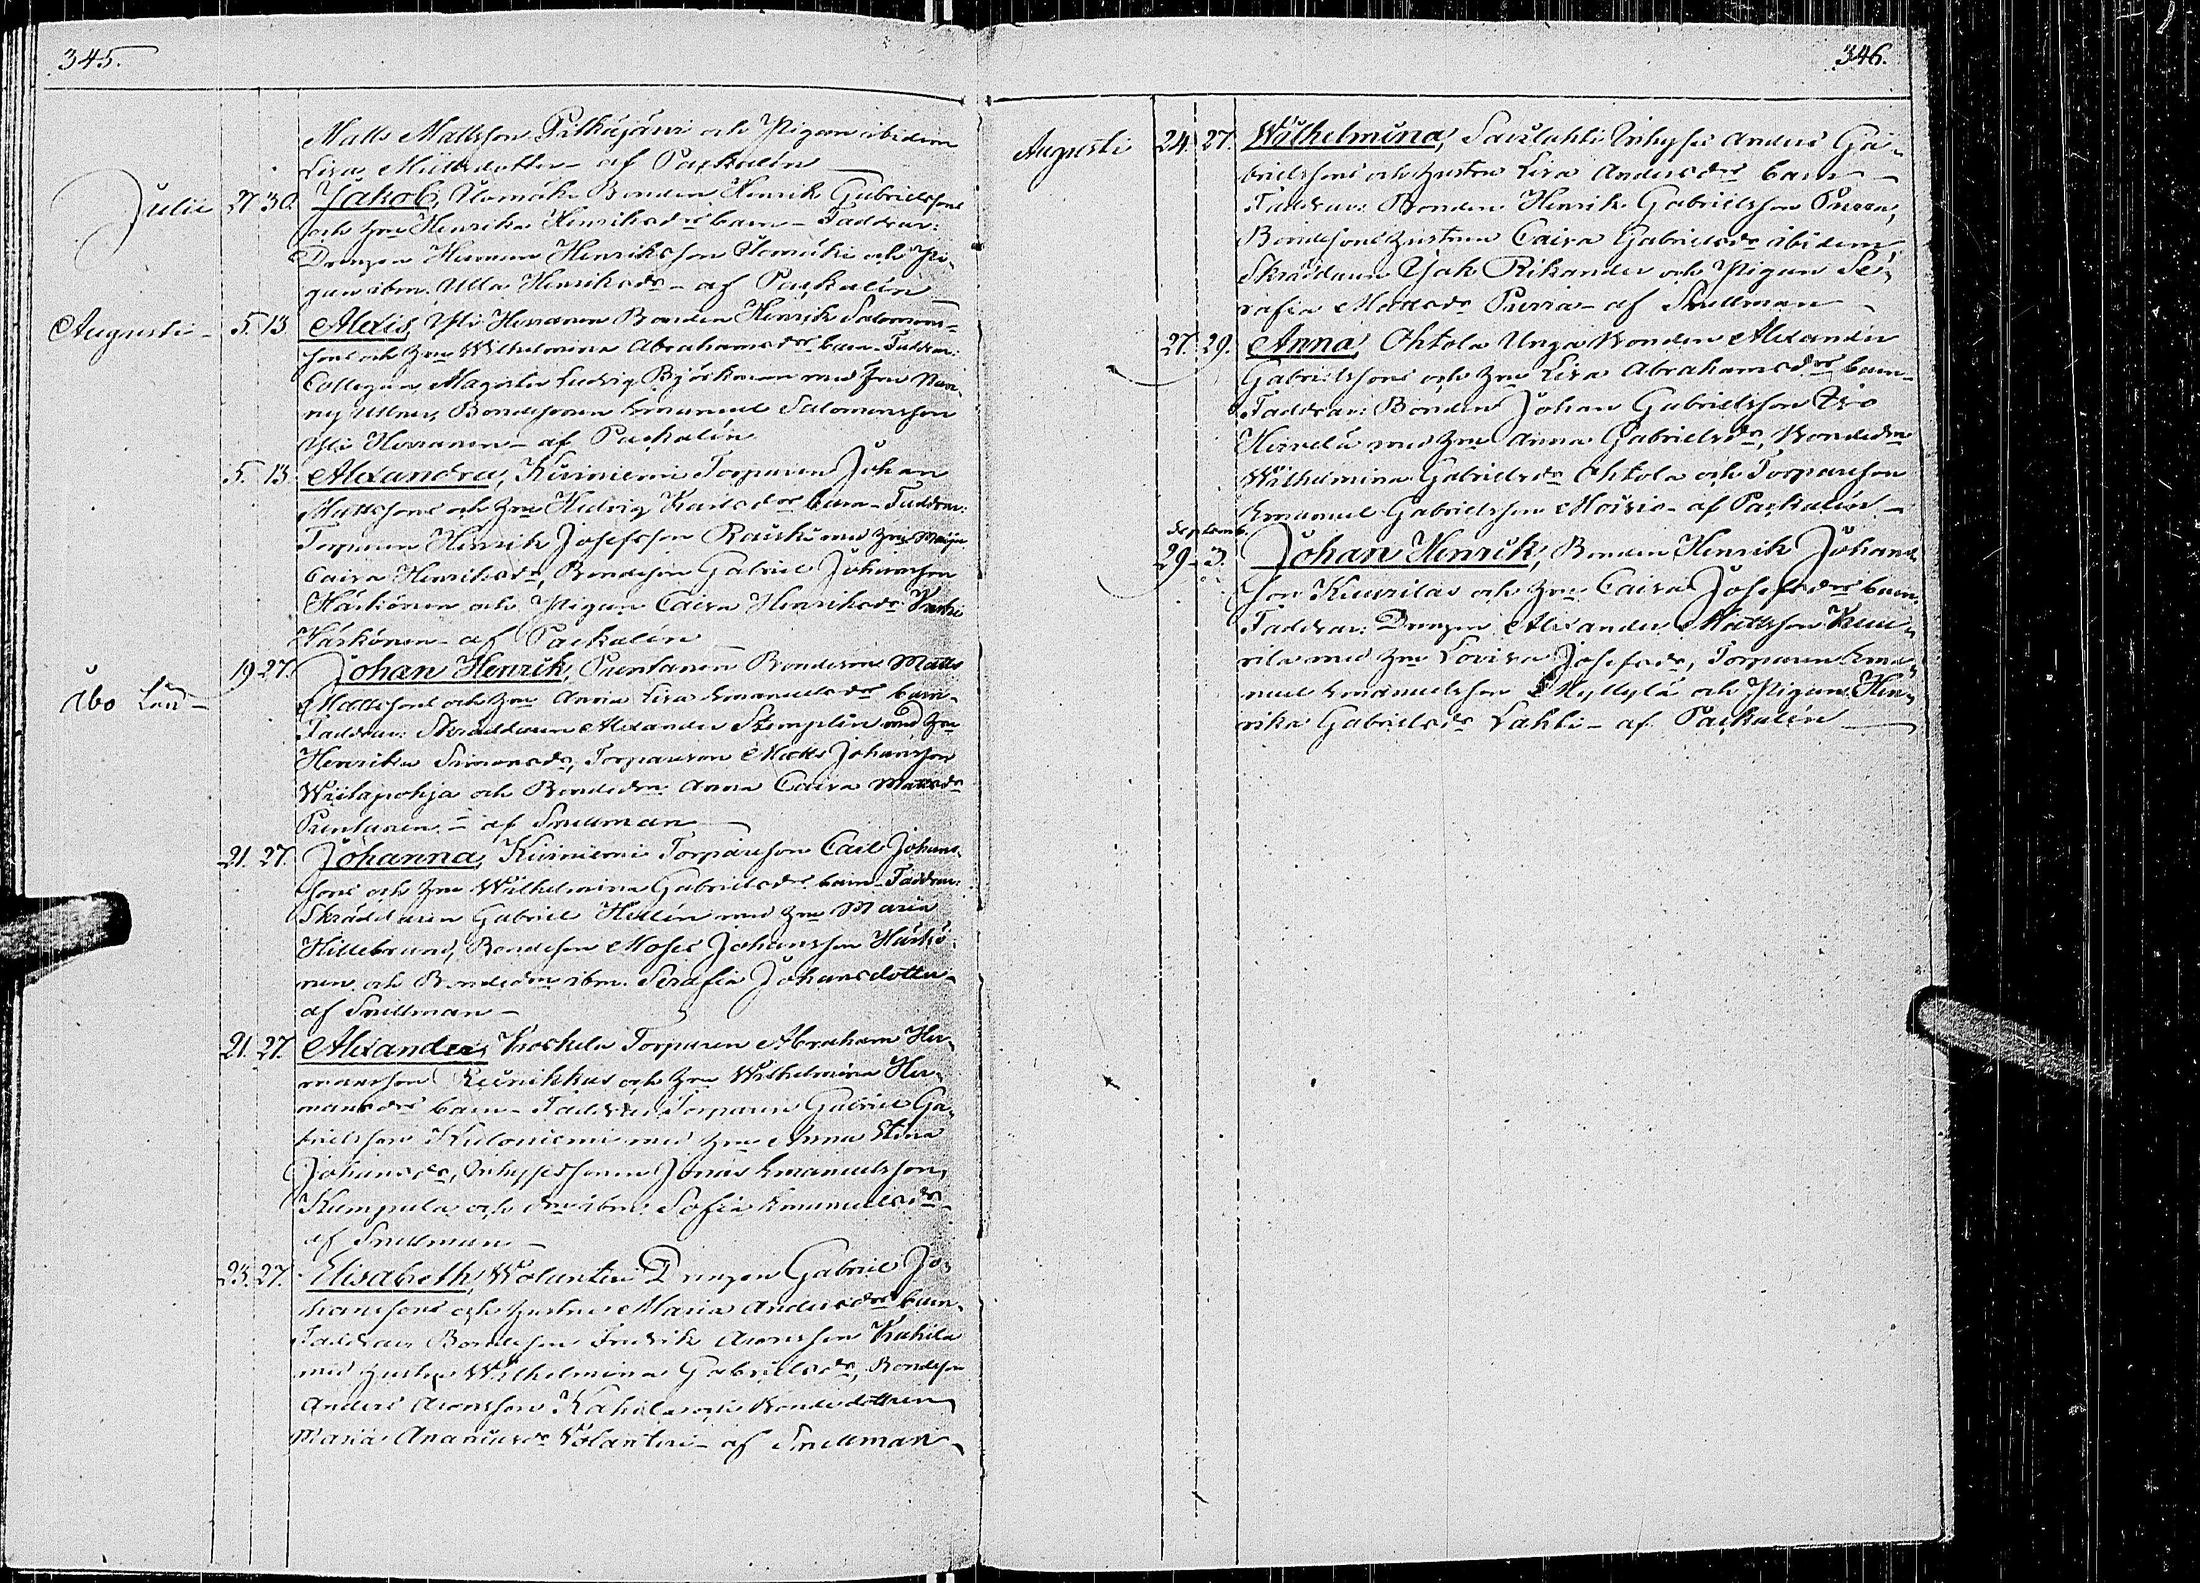 345.
Matts Mattsson Pitkäjärvi och Pigan ibidem
Lisa Mattsdotter - af Paskalén
Julii 27 30. Jakob, Ulomäki Bonden Henrik Gabrielssons
och hm Henrika Henriksdrs barn - Faddrar:
Drengen Herman Henriksson Ulomäki och Pi-
gan ibm. Ulla Henriksdr - af Paskalén
Augusti - 5. 13. Alexis, Yli Herranen Bonden Henrik Salomons-
sons och hm Wilhelmina Abrahamsdrs barn - Faddrar:
Collegan Magister Ludvig Björkman med Fru Nan-
ny, Bondesonen Emanuel Salomonsson
Yli Herranen - af Paskalén
5. 13. Alexandra, Kiviniemi Torparen Johan
Mattssons och hm Hedvig Karlsdrs barn - Faddrar:
Torparen Henrik Josefsson Rauski med hm Maja
Caisa Henriksdr, Bondeson Gabriel Johansson
Härkönen och Pigan Caisa Henriksdr
Härkönen - af Paskalén
Åbo Län - 19 27. Johan Henrik, Pentanen Bondeson Matts
Mattssons och hm Anna Lisa Emanuelsdrs barn -
Faddrar: Skräddaren Alexander Stenplin med hm
Henrika Simonsdr, Torpareson Matts Johansson
Wiitapohja och Bondedn. Anna Caisa Mattsdr
Pentanen - af Snellman
21. 27. Johanna, Kiviniemi Torpareson Carl Johans-
sons och hm Wilhelmina Gabrielsdrs barn - Faddrar:
Skräddaren Gabriel Hellén med hm Maria
Hillebrand, Bondeson Moses Johansson Härkö-
nen och Bondedn ibm. Serafia Johansdotter -
af Snellman -
21. 27. Alexander, Koskela Torparen Abraham Her-
mansson Kuinikkas och hm Wilhelmina Her-
mansdrs barn - Faddrar, Torparen Gabriel Ga-
brielsson Kuloniemi med hm Anna Stina
Johansdr, Inhysessonen Jonas Emanuelsson
Kumpula och drn ibm. Sofia Emanuelsdr -
af Snellman -
23. 27. Elisabeth, Wolantin Drengen Gabriel Jo-
hanssons och hustrus Maria Andersdrs barn.
Faddrar, Bondeson Fredrik Aronsson Kahila
med hustru Wilhelmina Gabrielsdr, Bondeson
Anders Aronsson Kahila och Bondedottren
Maria Ananiasdr Wolantin - af Snellman -
346.
Augusti 24. 27. Wilhelmina, Savilahti Inhyses Anders Ga-
brielssons och hustru Lisa Andersdrs barn -
Faddrar: Bonden Henrik Gabrielsson Purra,
Bondesons hustrun Caisa Gabrielsdr ibidem
Skräddaren Isak Rikander och Pigan Se-
rafia Mattsdr Purra - af Snellman -
27. 29. Anna, Ohtola Unga Bonden Alexander
Gabrielssons och hm Lisa Abrahamsdrs barn -
Faddrar: Bonden Johan Gabrielsson Iso
Hirvelä med hm Anna Gabrielsdr, Bondedn
Wilhelmina Gabrielsdr Ohtola och Torpareson
Emanuel Gabrielsson Moisio - af Paskalén -
Septemb.
29 - 3. Johan Henrik, Bonden Henrik Johans-
son Kuurilas och hm Caisa Josefsdrs barn.
Faddrar: Drengen Alexander Mattsson Kuu-
rila med hm Lovisa Josefsdr, Torparen Ema-
nuel Emanuelsson Myllylä och Pigan Hen-
rika Gabrielsdr Lahti - af Paskalén